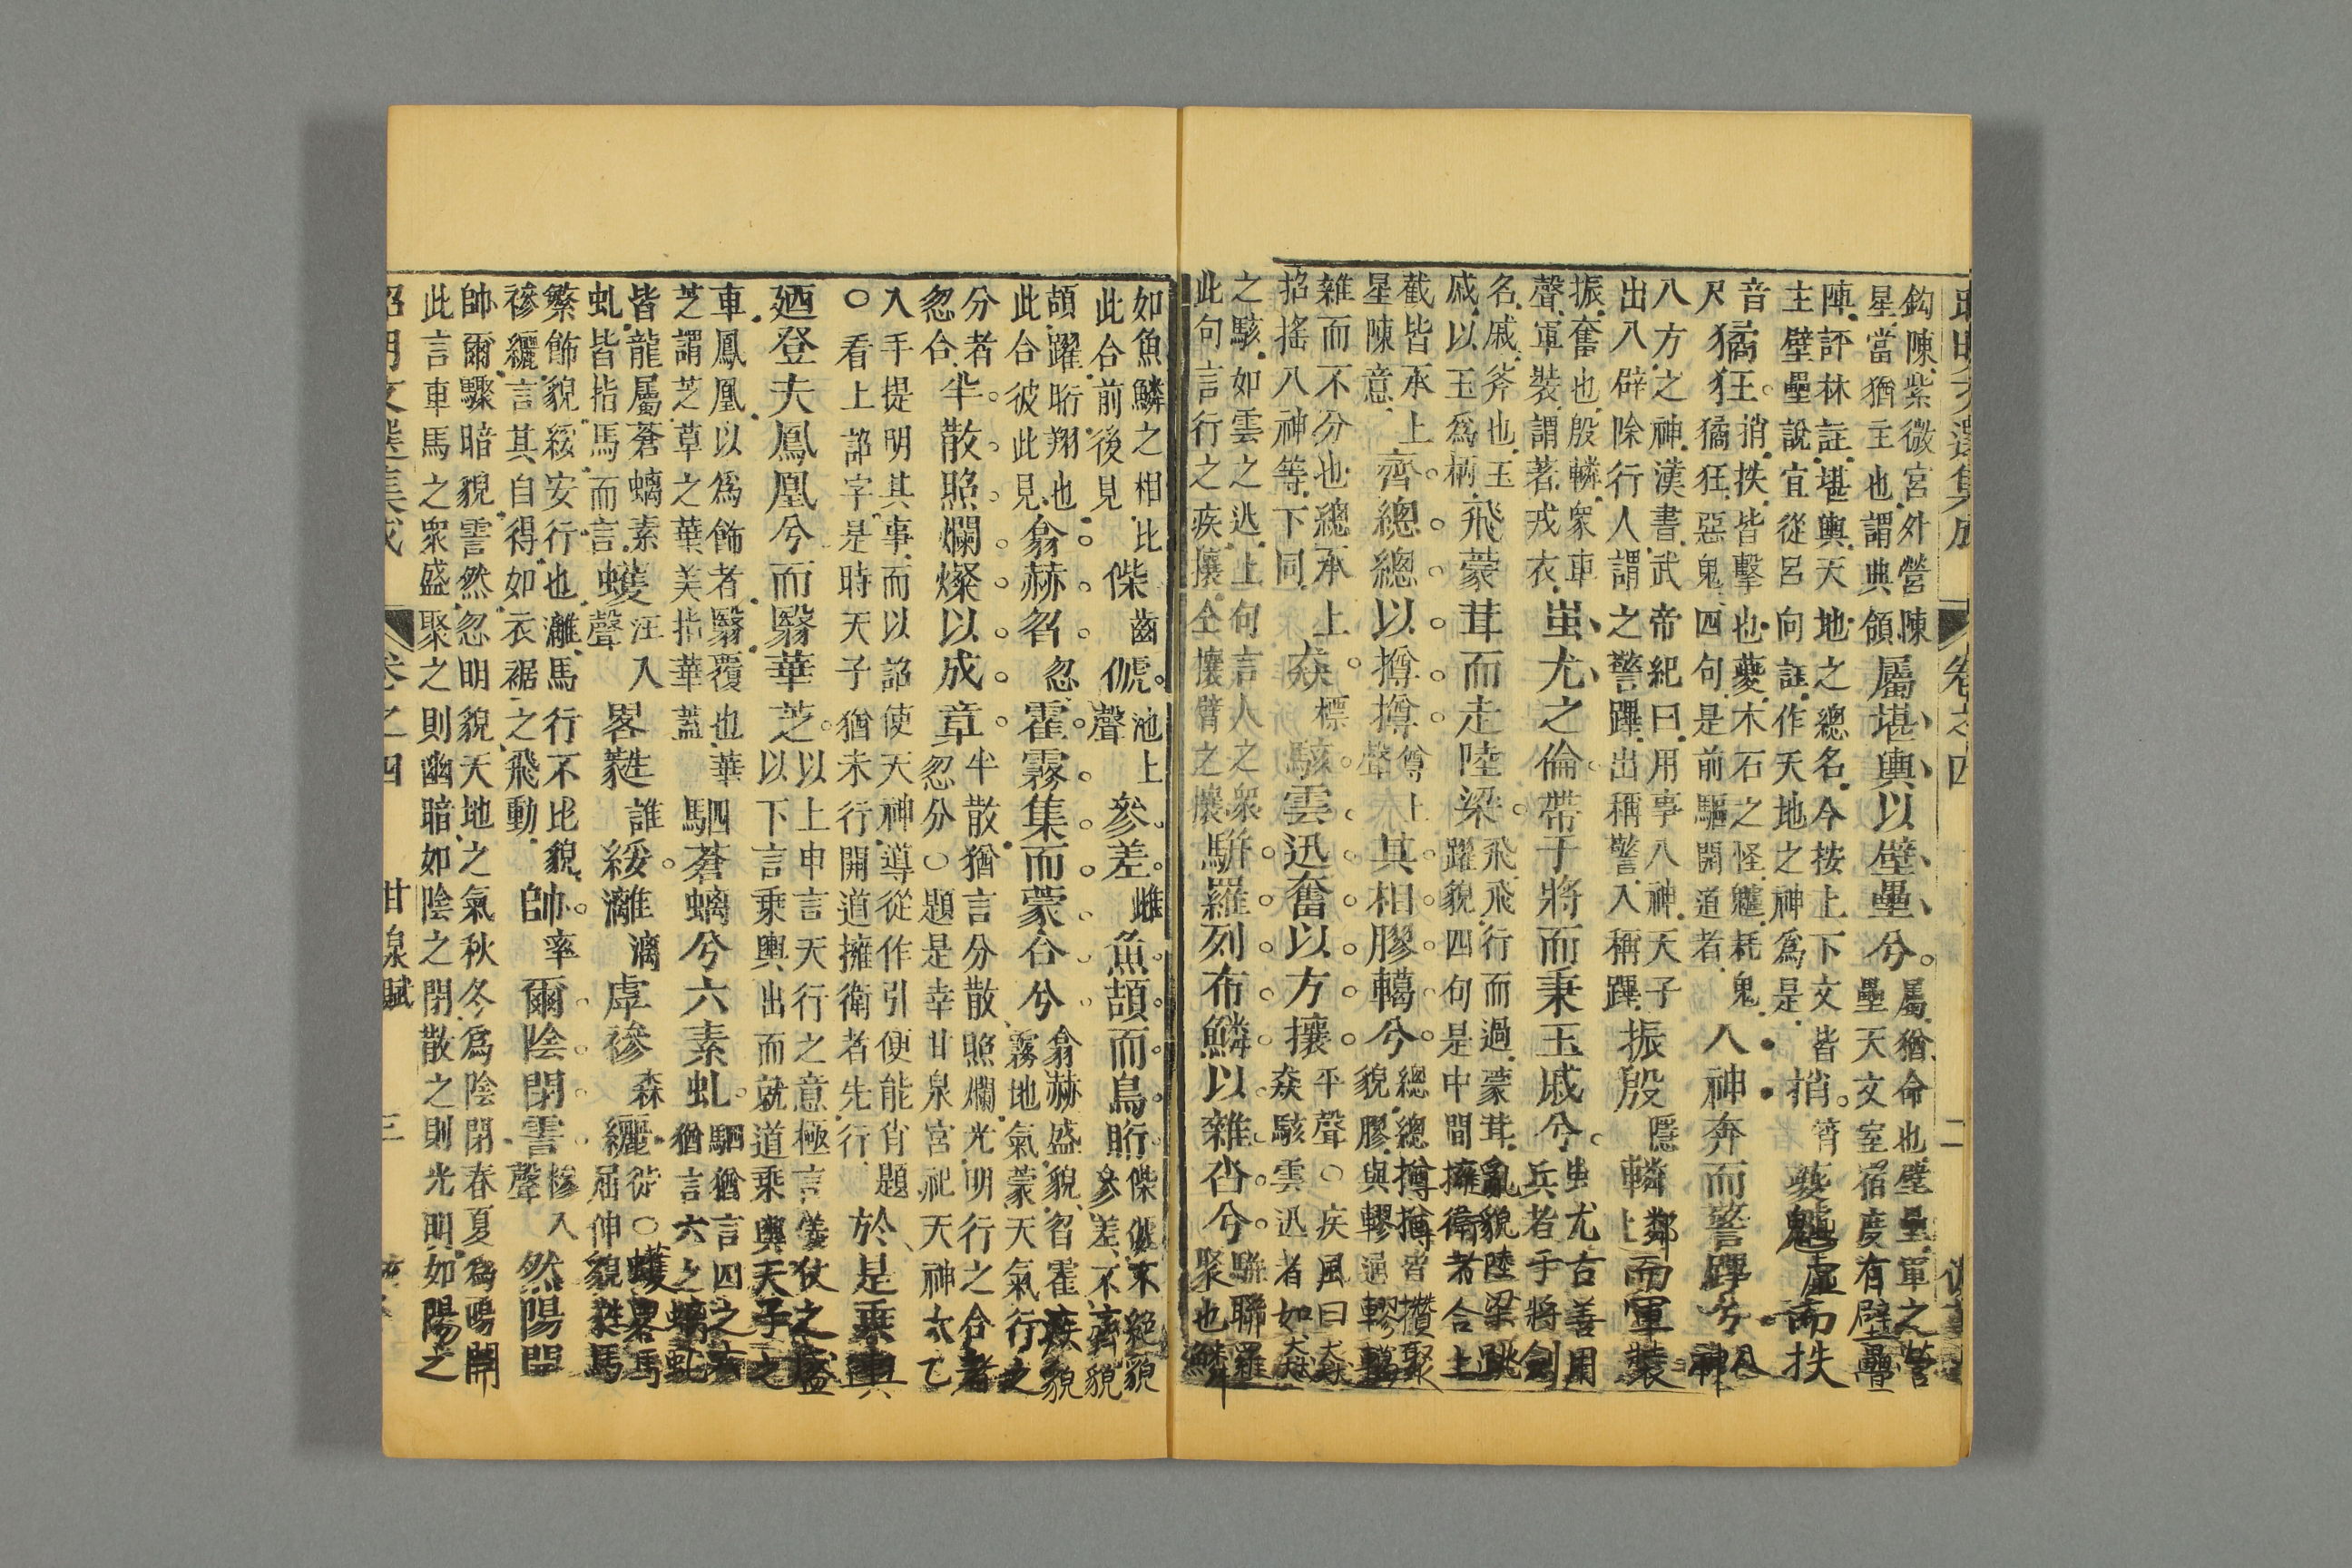 昭明文選集成 卷之四 二
鈎陳紫微宮外營陳星當猶主也謂典領屬堪輿以壁壘兮屬猶命也壁壘軍之營壘天文室宿度有壁壘
陣評林註堪輿天地之總名今按上下文皆主壁壘說宜從呂向註作天地之神為是捎筲夔魖虛而抶
音尺獝狂捎抶皆擊也夔木石之怪魖耗鬼獝狂惡鬼四句是前驅開道者八神奔而警蹕兮八神
八方之神漢書武帝紀曰用事八神天子出八辟除行人謂之警蹕出稱警入稱蹕振殷隱轔鄰上而軍裝
振奮也殷轔衆車聲軍裝謂著戎衣蚩尤之倫帶干將而秉玉戚兮蚩尤古善用兵者干將劍
名戚斧也玉戚以玉為柄飛蒙茸而走陸梁飛飛行而過蒙茸亂貌陸梁跳躍貌四句是中間擁衛者合上
截皆承上星陳意齊總總以撙撙尊上聲其相膠轕兮總總撙撙皆攢聚貌膠與轇通轇轕
雜而不分也總承上招搖八神等下同猋標駭雲迅奮以方攘平聲○疾風曰猋猋駭雲迅者如猋
之駭如雲之迅上句言人之衆此句言行之疾攘仝攘臂之攘駢羅列布鱗以雜沓兮駢聯羅聚也鱗
如魚鱗之相比此合前後見傑齒傂池上聲參差雌魚頡而鳥䀪傑傂不絕貌參差不齊貌
頡躍䀪翔也此合彼此見翕赫曶忽霍霧集而蒙合兮翕赫盛貌曶霍疾貌霧地氣蒙天氣行之
分者忽合半散照爛燦以成章半散猶言分散照爛光明行之合者忽分○題是幸甘泉宮祀天神太乙
入手提明其事而以詔使天神導從作引便能肖題○看上詔字是時天子猶未行開道擁衛者先行於是乘輿
廼登夫鳳凰兮而翳華芝以上申言天行之意極言儀仗之盛以下言乘輿出而就道乘輿天子之
車鳳凰以為飾者翳覆也華芝謂芝草之華美指華蓋駟蒼螭兮六素虬駟猶言四之六猶言六之螭虬
皆龍屬蒼螭素虬皆指馬而言蠖汪入聲畧蕤誰綏灕漓虖襂森纚徙○蠖畧馬屈伸貌蕤馬
繁飾貌綏安行也灕馬行不比貌襂纚言其自得如衣裾之飛動帥率爾陰閉霅慘入聲然陽開
帥爾驟暗貌霅然忽明貌天地之氣秋冬為陰閉春夏為陽開此言車馬之衆盛聚之則幽暗如陰之閉散之則光明如陽之
昭明文選集成 卷之四 甘泉賦 三